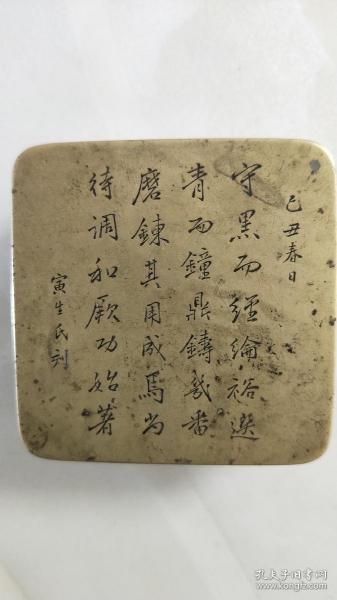 己丑春日
守黑而經綸裕選
青而鐘鼎鑄幾番
磨鍊其用成焉尚
待调和厥功始著
寅生氏刋
孔夫子旧书网